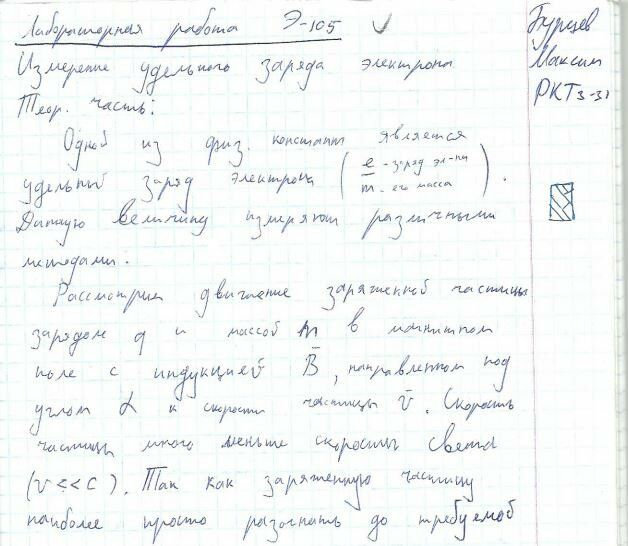 Лабораторная работа Э-105
Измерение удельного заряда электрона
Теор. часть:
Одной из физ. констант является
удельный заряд электрона ( e - заряд эл-на
m - его масса ) .
Данную величину измеряют различными
методами.
Рассмотрим движение заряженной частицы
зарядом q и массой m в магнитном
поле с индукцией B̄, направленном под
углом α к скорости частицы v̄. Скорость
частицы много меньше скорости света
(v << c). Так как заряженную частицу
наиболее просто разогнать до требуемой
Бурцев
Максим
РКТ3-31